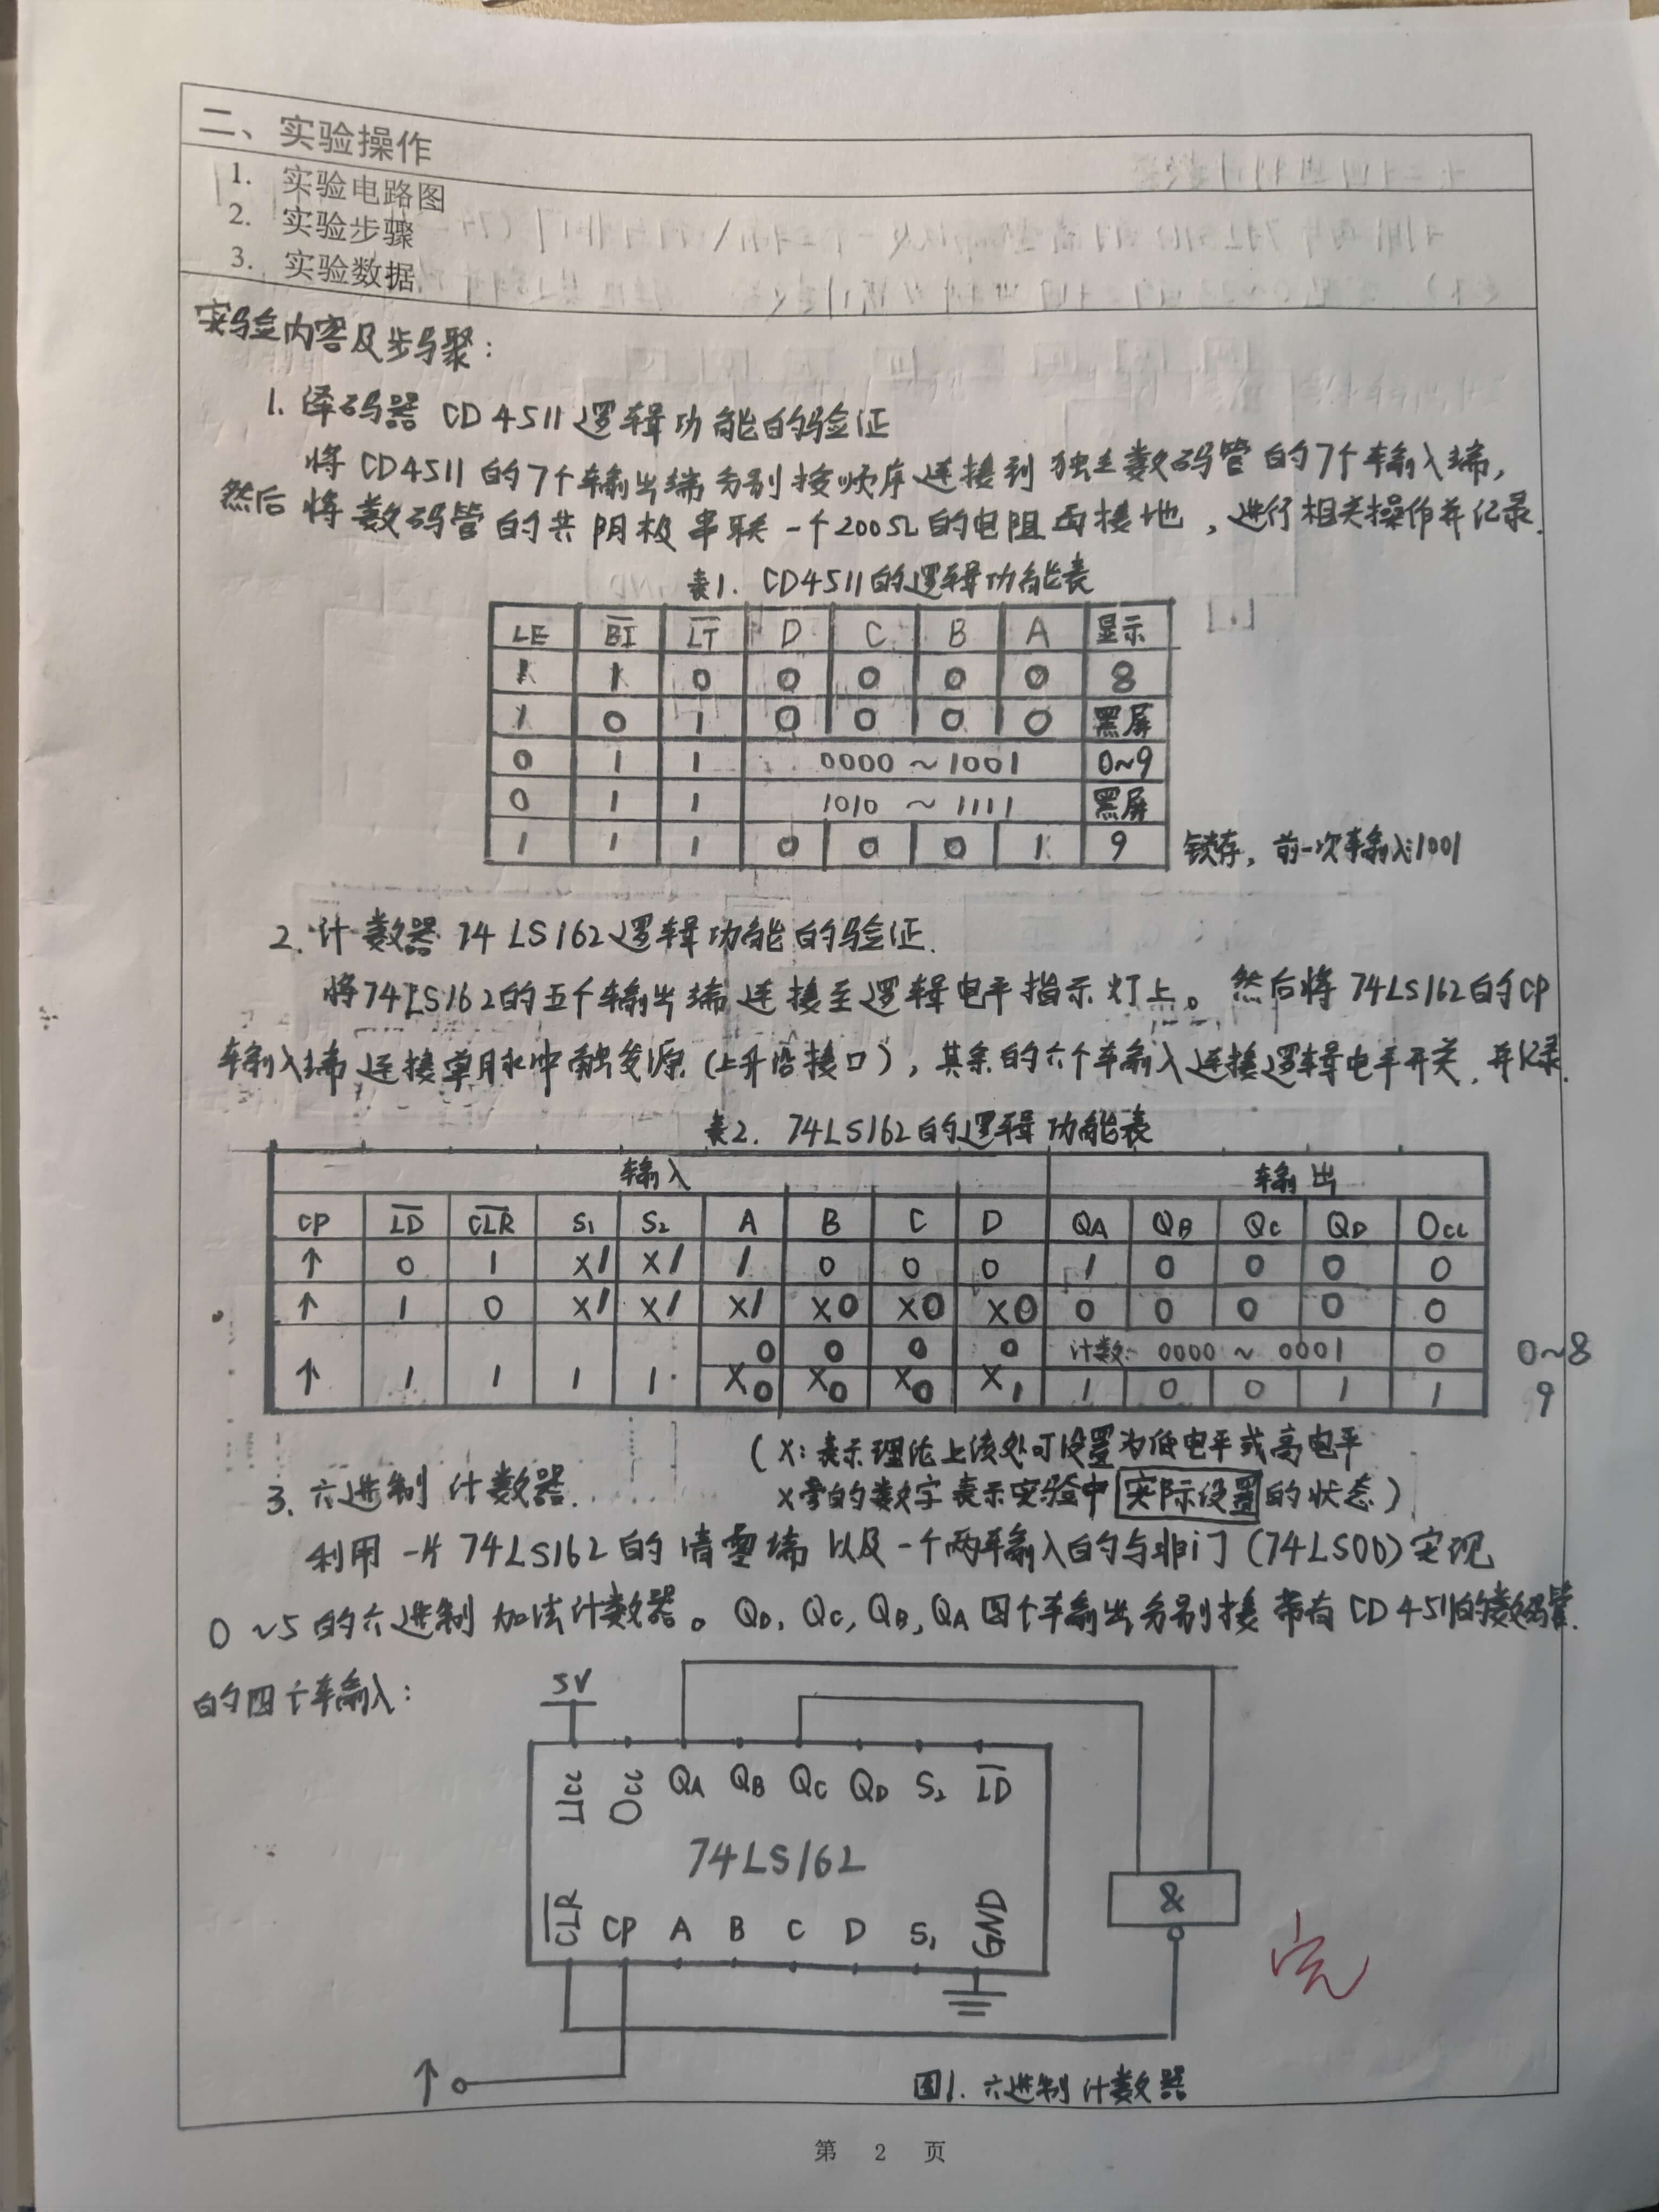 二、实验操作
1. 实验电路图
2. 实验步骤
3. 实验数据
实验内容及步骤：
1. 译码器 CD4511逻辑功能的验证
将CD4511的7个输出端分别按顺序连接到独立数码管的7个输入端，
然后将数码管的共阴极串联一个200Ω的电阻再接地，进行相关操作并记录.
表1. CD4511的逻辑功能表
LE B̅I̅ L̅T̅ D C B A 显示
X 1 0 0 0 0 0 8
X 0 1 0 0 0 0 黑屏
0 1 1 0000～1001 0~9
0 1 1 1010～1111 黑屏
1 1 1 0 0 0 1 9 锁存，前一次输入1001
2. 计数器 74LS162逻辑功能的验证.
将74LS162的五个输出端连接至逻辑电平指示灯上。然后将74LS162的CP
输入端连接单脉冲触发源(上升沿接口)，其余的六个输入连接逻辑电平开关，并记录.
表2. 74LS162的逻辑功能表
输入 输出
CP L̅D̅ C̅L̅R̅ S₁ S₂ A B C D QA QB QC QD Occ
↑ 0 1 X1 X1 1 0 0 0 1 0 0 0 0
↑ 1 0 X1 X1 X1 X0 X0 X0 0 0 0 0 0
0 0 0 0 计数: 0000～0001 0 0~8
↑ 1 1 1 1 X0 X0 X0 X1 1 0 0 1 1 9
(X: 表示理论上该处可设置为低电平或高电平
X旁的数字表示实验中实际设置的状态)
3. 六进制计数器.
利用一片74LS162的清零端以及一个两输入的与非门(74LS00)实现
0~5的六进制加法计数器。QD, QC, QB, QA四个输出分别接带有CD4511的数码管.
的四个输入:
5V
Ucc Occ QA QB QC QD S₂ L̅D̅
74LS162
&
C̅L̅R̅ CP A B C D S₁ GND
↑
图1. 六进制计数器
第 2 页